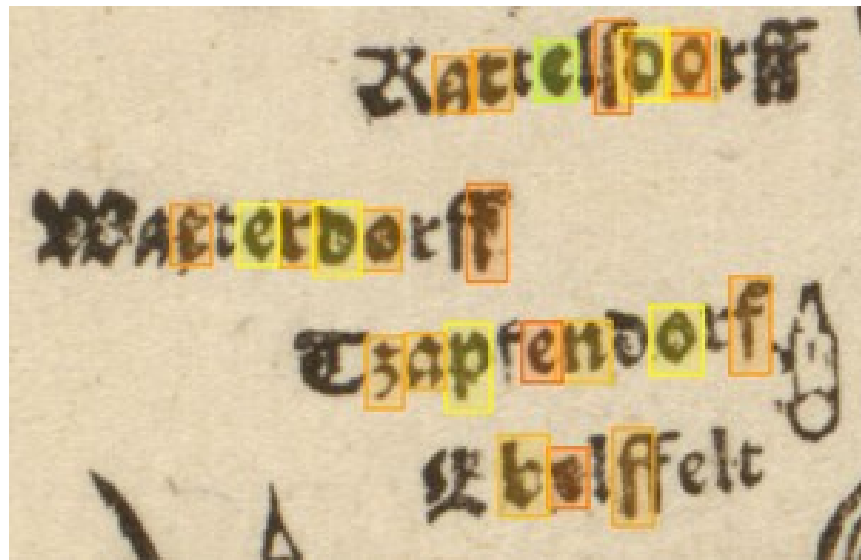 Rattelsdorff
Watterdorff
Tzapfendorf
Ebelsfelt